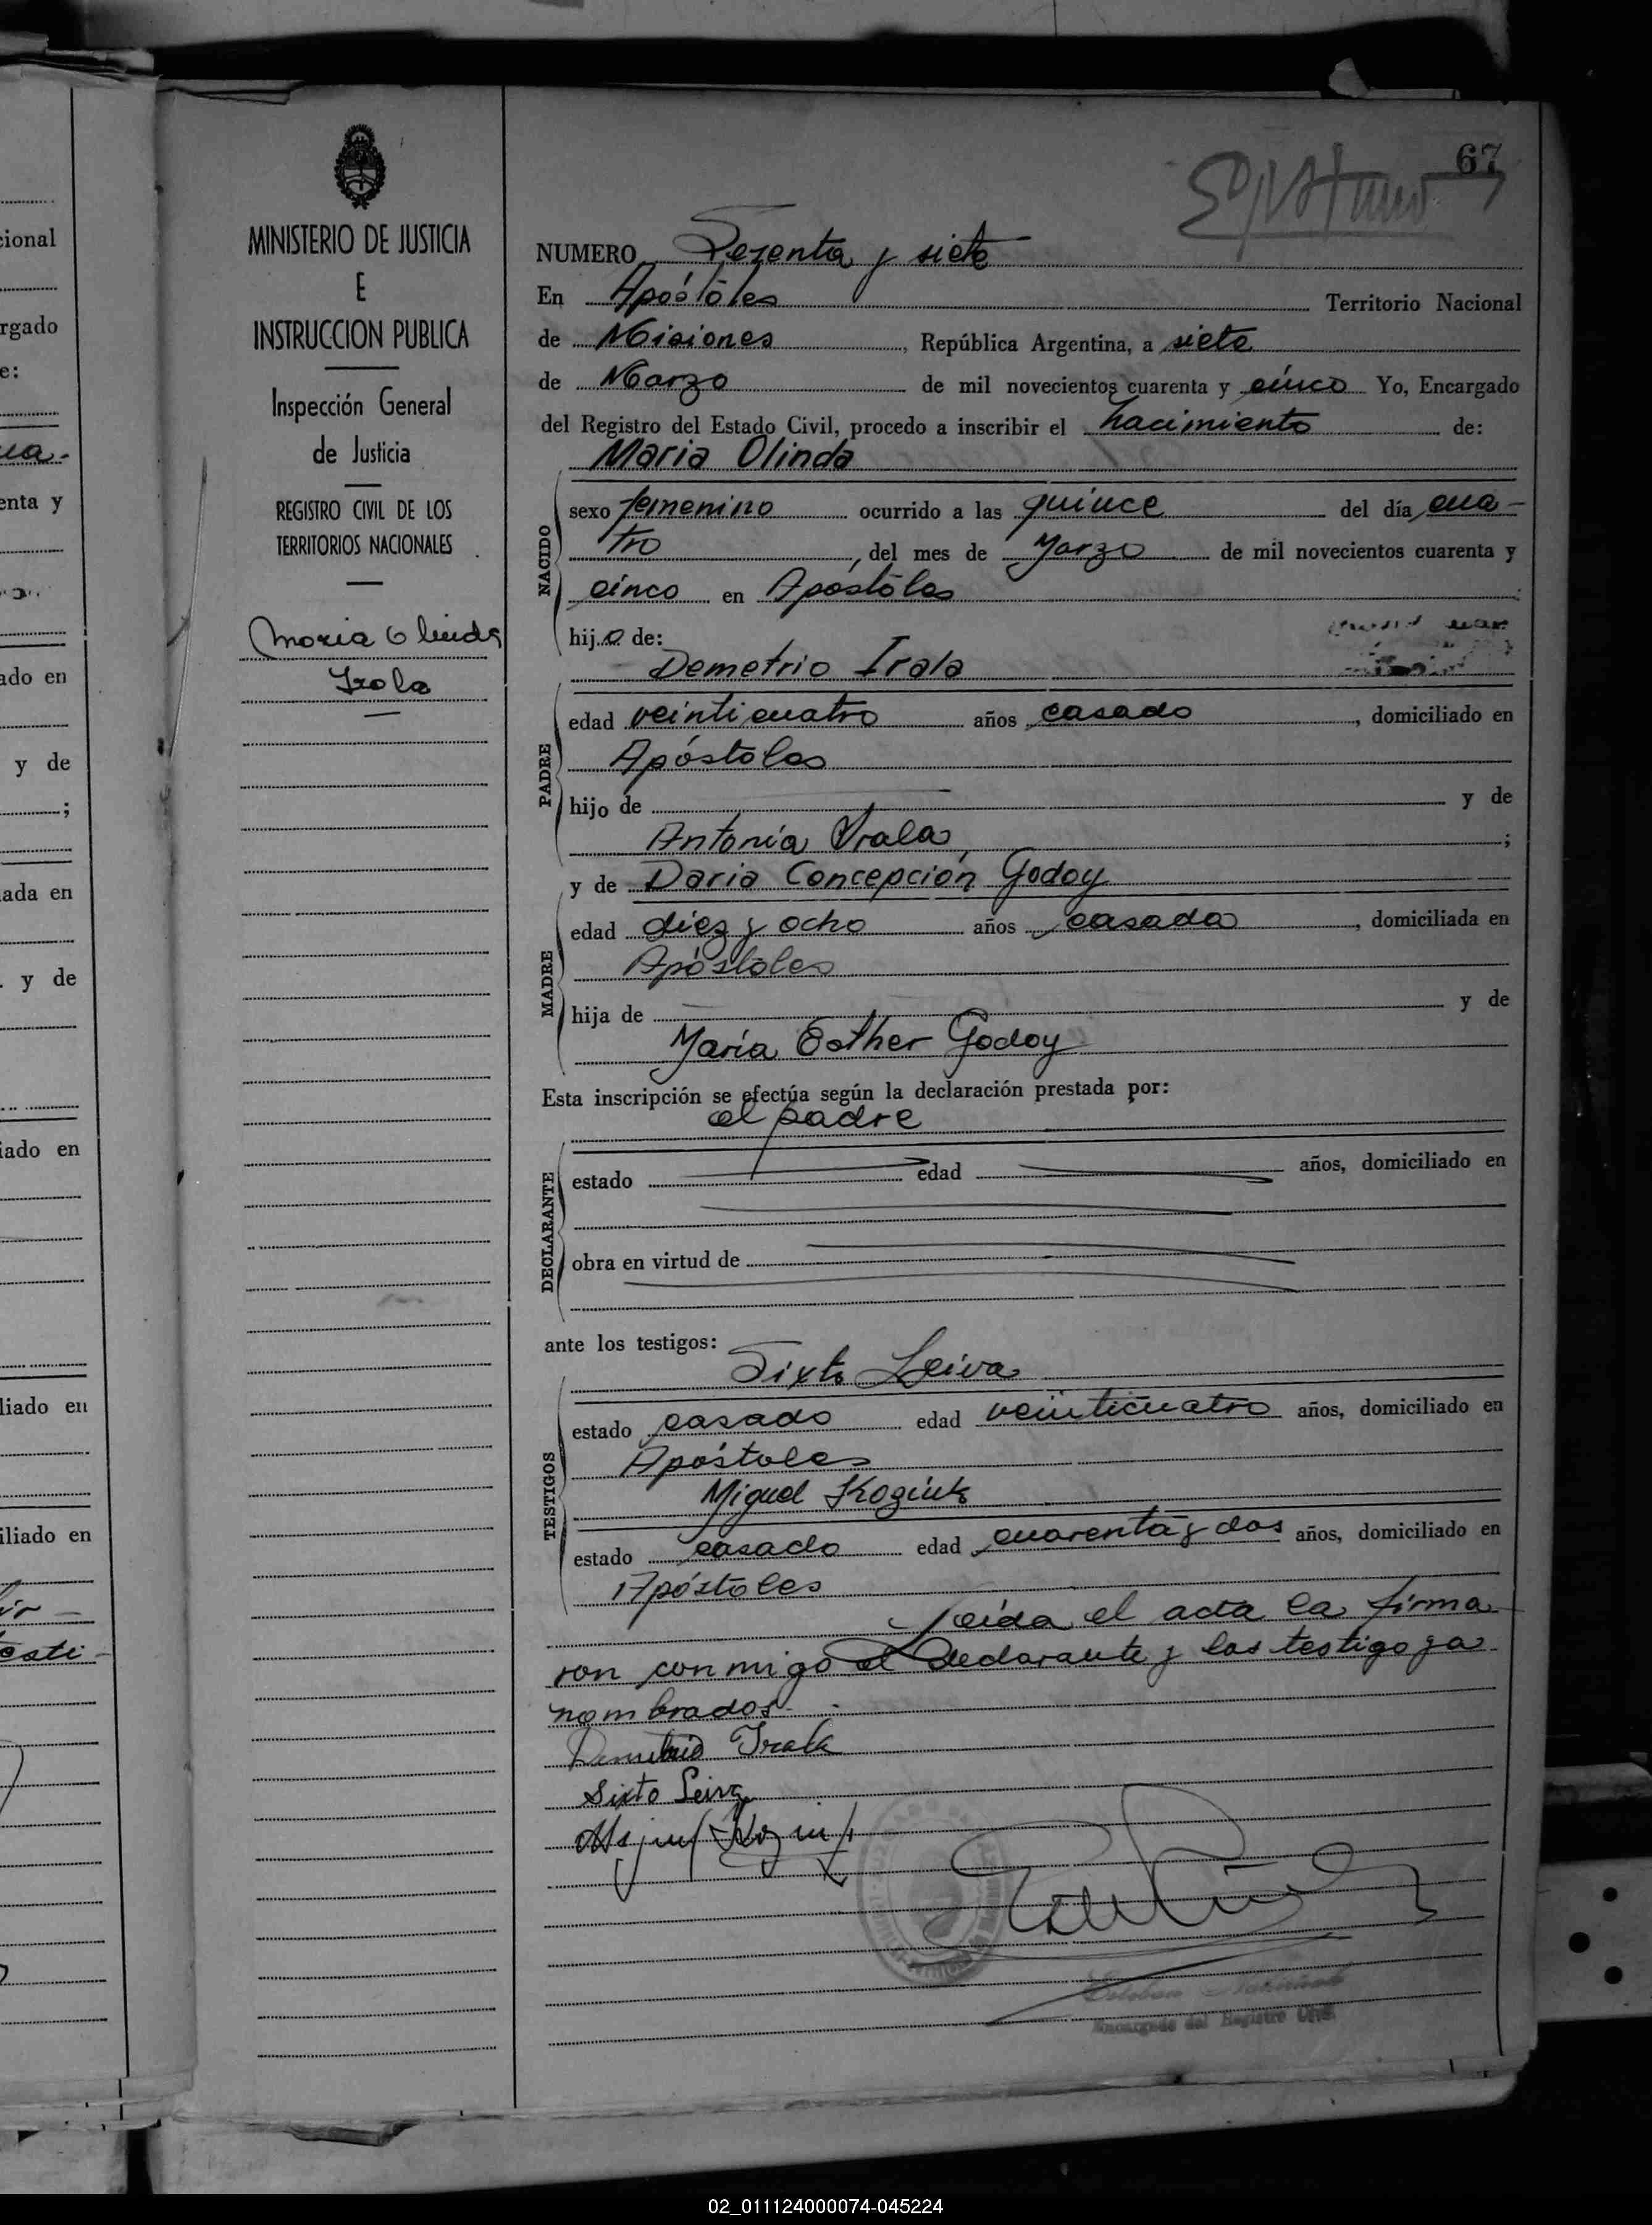 67
MINISTERIO DE JUSTICIA
E
INSTRUCCION PUBLICA
Inspección General
de Justicia
REGISTRO CIVIL DE LOS
TERRITORIOS NACIONALES
Maria Olinda
Irala
NUMERO Sesenta y siete
En Apóstoles Territorio Nacional
de Misiones, República Argentina, a siete
de Marzo de mil novecientos cuarenta y cinco Yo, Encargado
del Registro del Estado Civil, procedo a inscribir el nacimiento de:
Maria Olinda
NACIDO
sexo femenino ocurrido a las quince del día cua-
tro, del mes de Marzo de mil novecientos cuarenta y
cinco en Apóstoles
hija de:
Demetrio Irala
PADRE
edad veinticuatro años casado, domiciliado en
Apóstoles
hijo de y de
Antonia Irala;
y de Daria Concepción Godoy
MADRE
edad diez y ocho años casada, domiciliada en
Apóstoles
hija de y de
María Esther Godoy
Esta inscripción se efectúa según la declaración prestada por:
el padre
DECLARANTE
estado edad años, domiciliado en
obra en virtud de
ante los testigos:
Sixto Leiva
TESTIGOS
estado casado edad veinticuatro años, domiciliado en
Apóstoles
Miguel Koziuk
estado casado edad cuarenta y dos años, domiciliado en
Apóstoles
Leída el acta la firma
ron conmigo el declarante y los testigo ya
nombrados.
Demetrio Irala
Sixto Leiva
Encargado del Registro Civil
cional
rgado
e:
ua.
enta y
ado en
y de
;
ada en
. y de
iado en
liado en
iliado en
esti-
02_011124000074-045224